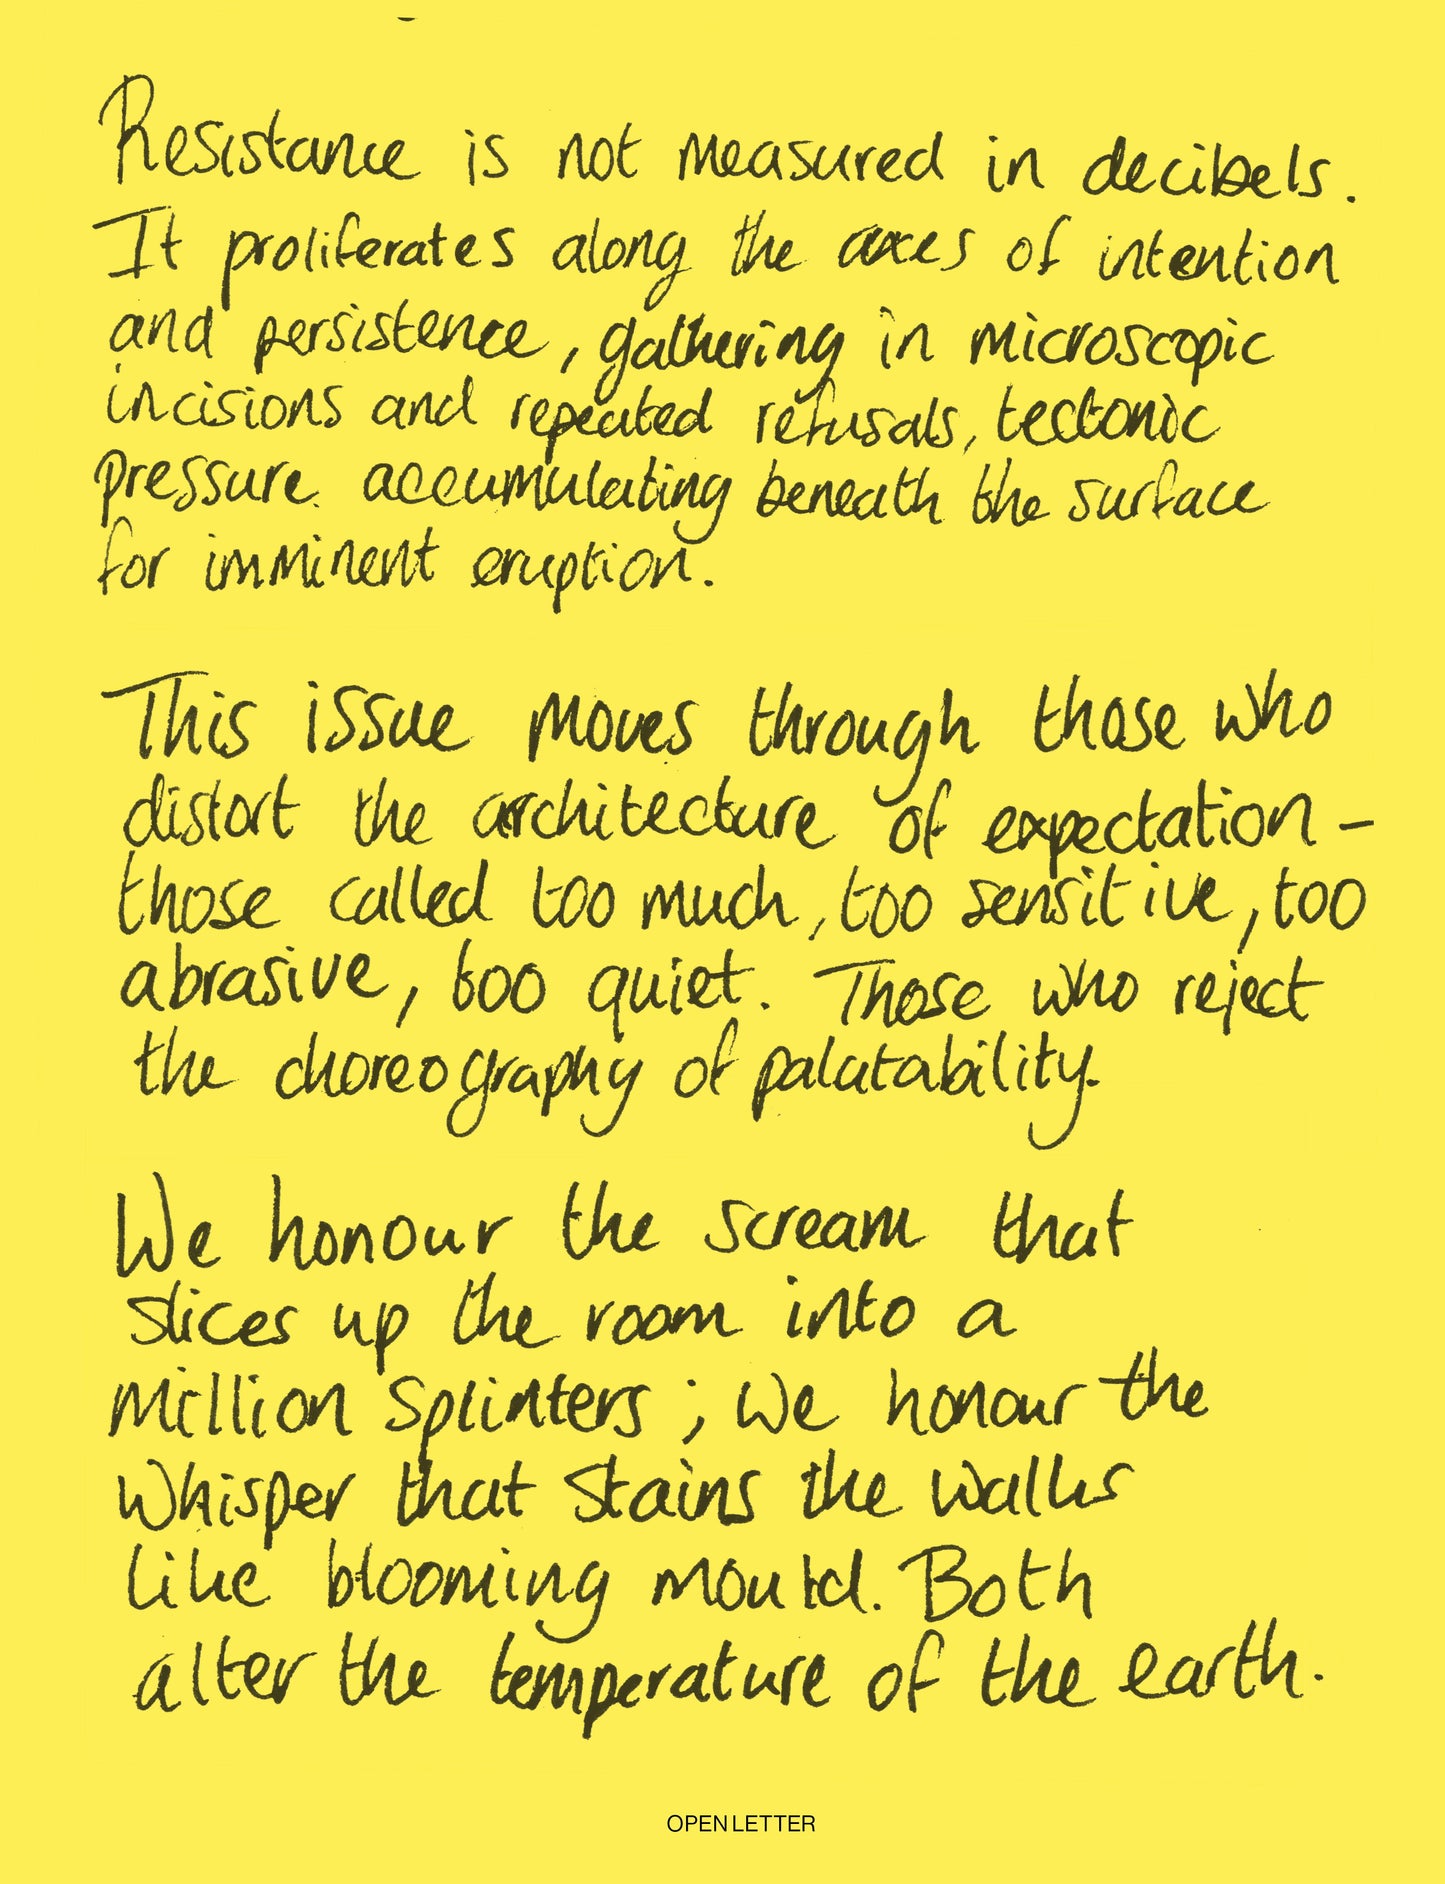 Resistance is not measured in decibels.
It proliferates along the axes of intention
and persistence, gathering in microscopic
incisions and repeated refusals, tectonic
pressure accumulating beneath the surface
for imminent eruption.
This issue moves through those who
distort the architecture of expectation –
those called too much, too sensitive, too
abrasive, too quiet. Those who reject
the choreography of palatability.
We honour the scream that
slices up the room into a
million splinters; we honour the
whisper that stains the walls
like blooming mould. Both
alter the temperature of the earth.
OPEN LETTER